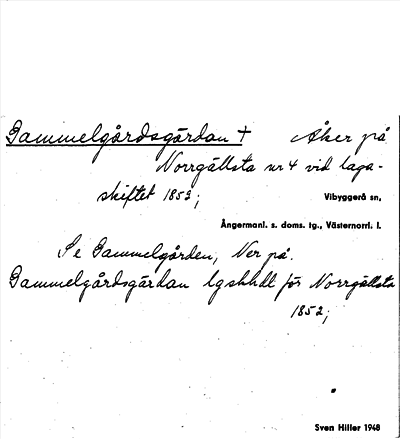 Gammelgårdsgärdan † Åker på
Norrgällsta nr 4 vid laga-
skiftet 1853;
Vibyggerå sn,
Ångermanl. s. doms. tg., Västernorrl. l.
Se Gammelgården, Ner på.
Gammelgårdsgärdan lgskhdl för Norrgällsta
1852;
Sven Hiller 1948